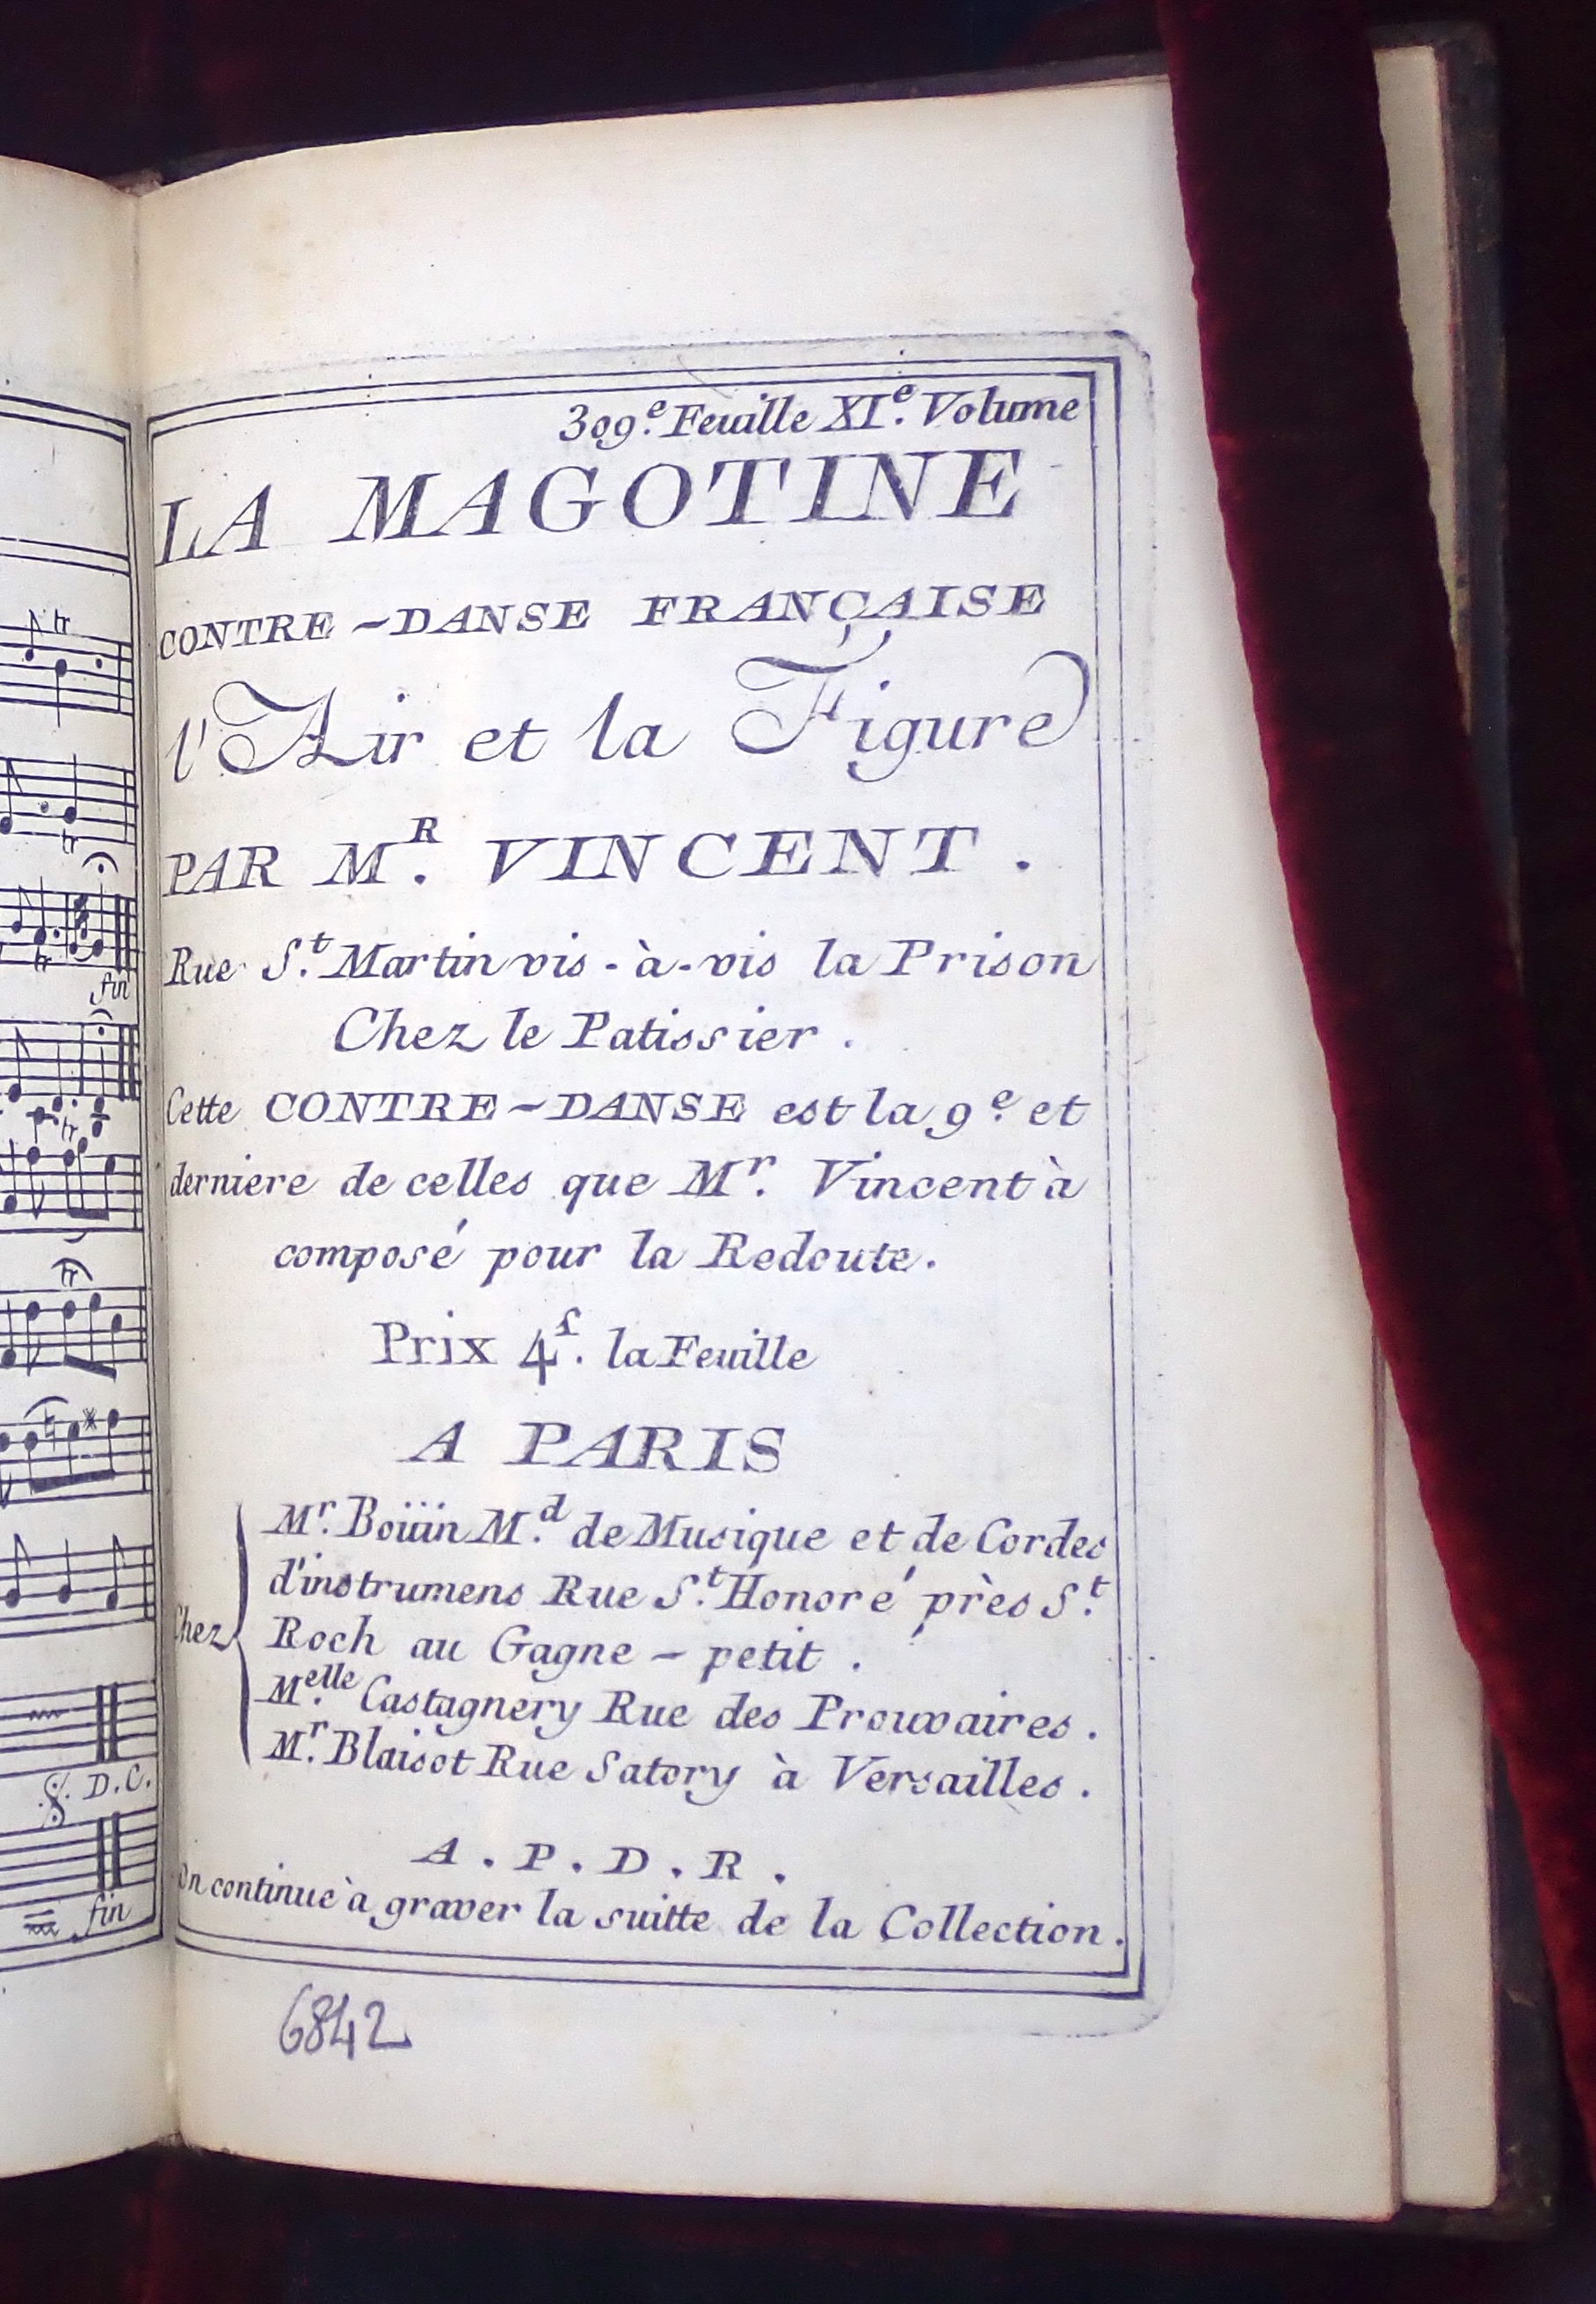 309.e Feuille XI.e Volume
LA MAGOTINE
CONTRE-DANSE FRANÇAISE
l'Air et la Figure
PAR M.R VINCENT.
Rue S.t Martin vis-à-vis la Prison
Chez le Patissier.
Cette CONTRE-DANSE est la 9.e et
derniere de celles que M.r Vincent à
composé pour la Redoute.
Prix 4.s la Feuille
A PARIS
Chez
M.r Boüin M.d de Musique et de Cordes
d'instrumens Rue S.t Honoré près S.t
Roch au Gagne-petit.
M.elle Castagnery Rue des Prouvaires.
M.r Blaisot Rue Satory à Versailles.
A.P.D.R.
On continue à graver la suitte de la Collection.
6842
fin
D.C.
fin